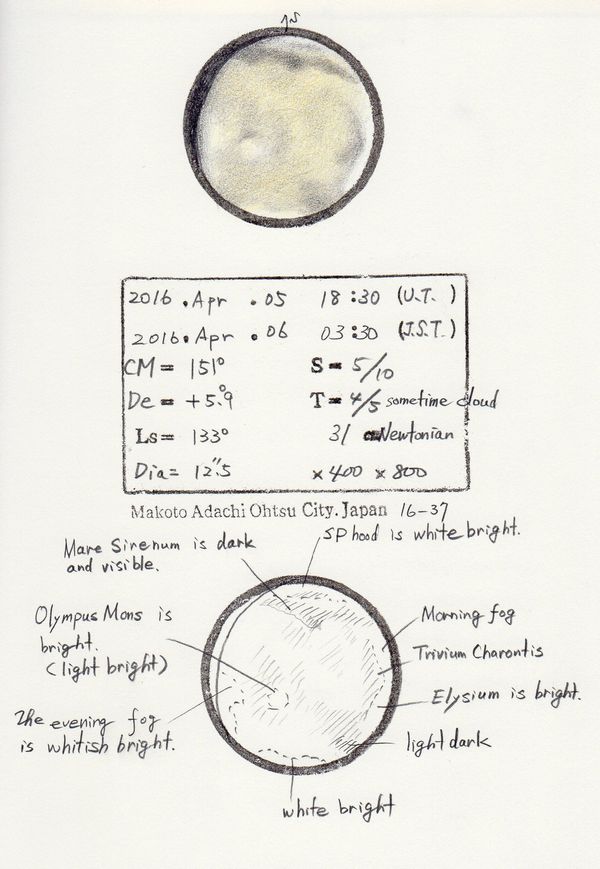 ↑S
2016 . Apr . 05 18:30 (U.T. )
2016 . Apr . 06 03:30 (J.S.T. )
CM= 151° S= 5/10
De= +5.°9 T= 4/5 sometime cloud
Ls= 133° 31 cm Newtonian
Dia= 12."5 ×400 ×800
Makoto Adachi Ohtsu City. Japan 16-37
SP hood is white bright.
Mare Sirenum is dark
and visible.
Olympus Mons is
bright.
(light bright)
The evening fog
is whitish bright.
Morning fog
Trivium Charontis
Elysium is bright.
light dark
white bright